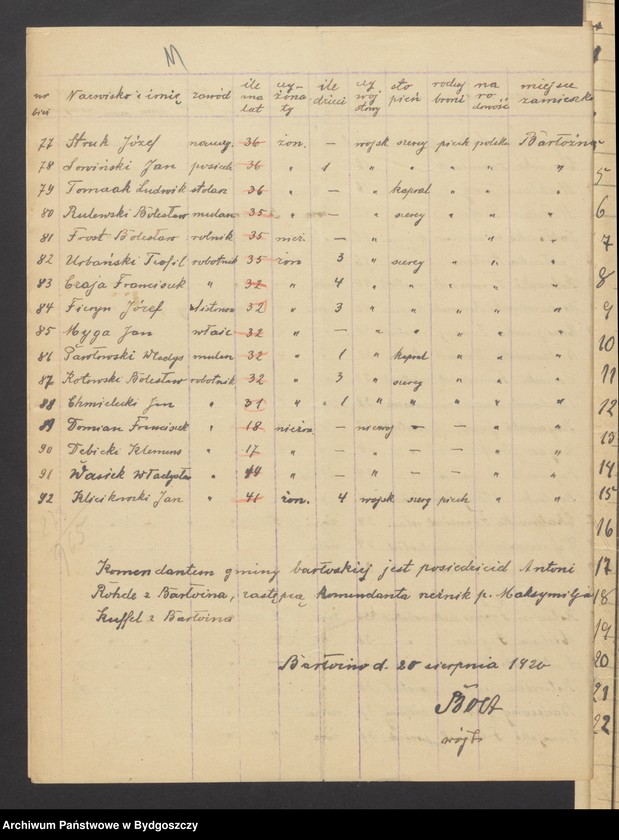 M
nr bież Nazwisko i imię zawód ile ma lat czy żonaty ile dzieci czy wojskowy stopień rodzaj broni narodowość miejsce zamieszk.
77 Struk Józef naucz. 36 żon. — wojsk szereg piech polska Bartóżno
78 Sowiński Jan posied. 36 " 1 " " " " "
79 Tomaak Ludwik stolarz 36 " — " kapral " " "
80 Rulewski Bolesław mularz 35 " — " szereg " " "
81 Frost Bolesław rolnik 35 nież. — " " "
82 Urbański Teofil robotnik 35 żon 3 " szereg " " "
83 Czaja Franciszek " 32 " 4 " " " " "
84 Józef 32 " 3 " " " " "
85 Myga Jan właśc 32 " — " " " " "
86 Pawłowski Władys mularz 32 " 1 " kapral " " "
87 Kotowski Bolesław robotnik 32 " 3 " szereg " " "
88 Chmielecki Jan " 31 " 1 " " " " "
89 Domian Franciszek " 18 nieżon — niewoj — — " "
90 Dębicki Klemens " 17 " — " — — " "
91 Wasiek Władysław " 44 " — " — — " "
92 Klicikowski Jan " 41 żon. 4 wojsk szereg piech " "
Komendantem gminy bartoskiej jest posiedziciel Antoni
Rohde z Bartoźna, zastępcą komendanta rzeźnik p. Maksymilja
Kuffel z Bartoźna
Bartoźno d. 20 sierpnia 1920
wójt
5
6
7
8
9
10
11
12
13
14
15
16
17
18
19
20
21
22
Archiwum Państwowe w Bydgoszczy